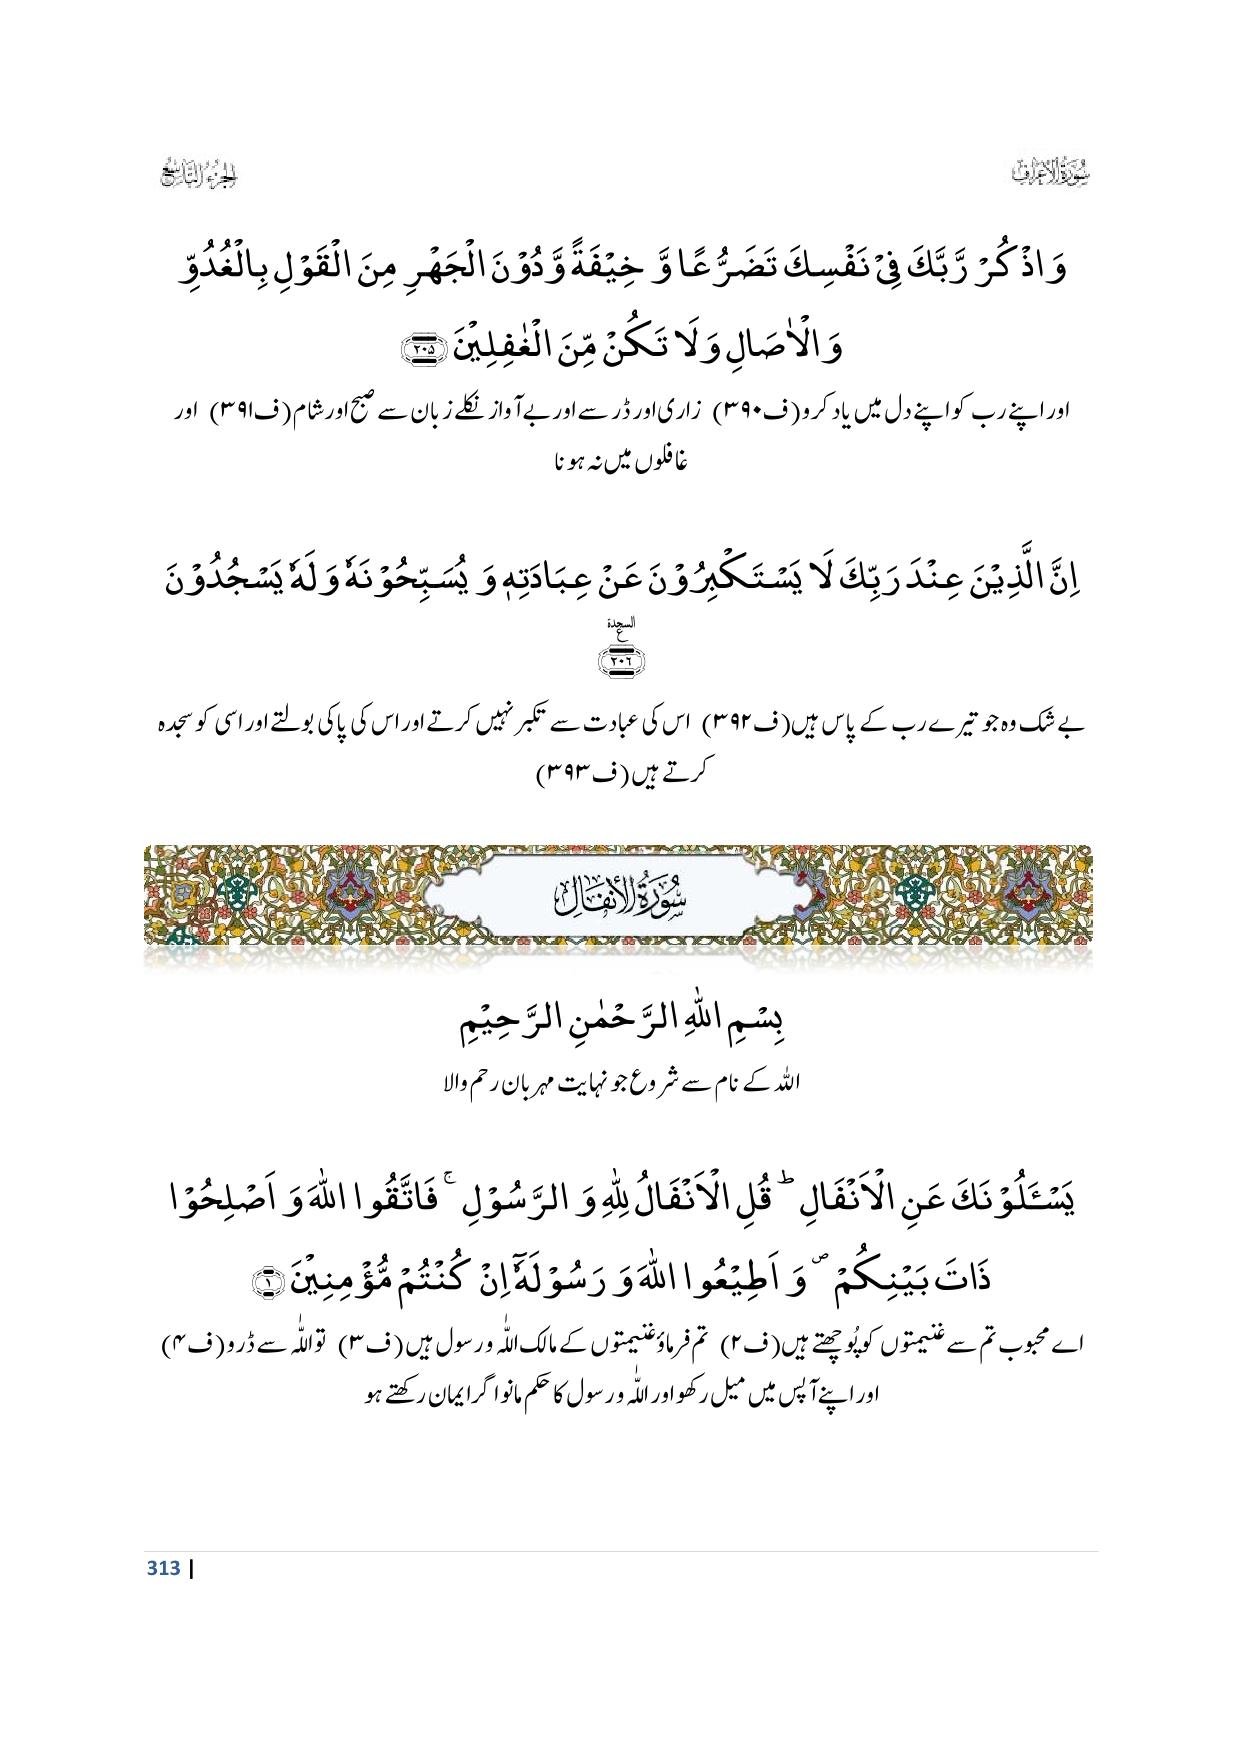 سُوْرَةُ الْأَعْرَاف
الجزء التاسع
وَ اذْكُرْ رَّبَّكَ فِیْ نَفْسِكَ تَضَرُّعًا وَّ خِیْفَةً وَّ دُوْنَ الْجَهْرِ مِنَ الْقَوْلِ بِالْغُدُوِّ
وَ الْاٰصَالِ وَ لَا تَكُنْ مِّنَ الْغٰفِلِیْنَ ﴿۲۰۵﴾
اور اپنے رب کو اپنے دل میں یاد کرو (ف۳۹۰) زاری اور ڈر سے اور بے آواز نکلے زبان سے صبح اور شام (ف۳۹۱) اور
غافلوں میں نہ ہونا
اِنَّ الَّذِیْنَ عِنْدَ رَبِّكَ لَا یَسْتَكْبِرُوْنَ عَنْ عِبَادَتِهٖ وَ یُسَبِّحُوْنَهٗ وَ لَهٗ یَسْجُدُوْنَ
السجدة
ع
﴿۲۰۶﴾
بے شک وہ جو تیرے رب کے پاس ہیں (ف۳۹۲) اس کی عبادت سے تکبر نہیں کرتے اور اس کی پاکی بولتے اور اسی کو سجدہ
کرتے ہیں (ف۳۹۳)
سُوْرَةُ الْأَنْفَال
بِسْمِ اللّٰهِ الرَّحْمٰنِ الرَّحِیْمِ
اللہ کے نام سے شروع جو نہایت مہربان رحم والا
یَسْـَٔلُوْنَكَ عَنِ الْاَنْفَالِ ؕ قُلِ الْاَنْفَالُ لِلّٰهِ وَ الرَّسُوْلِ ۚ فَاتَّقُوا اللّٰهَ وَ اَصْلِحُوْا
ذَاتَ بَیْنِكُمْ ۪ وَ اَطِیْعُوا اللّٰهَ وَ رَسُوْلَهٗۤ اِنْ كُنْتُمْ مُّؤْمِنِیْنَ ﴿۱﴾
اے محبوب تم سے غنیمتوں کو پُوچھتے ہیں (ف۲) تم فرماؤ غنیمتوں کے مالک اللّٰہ و رسول ہیں (ف۳) تو اللّٰہ سے ڈرو (ف۴)
اور اپنے آپس میں میل رکھو اور اللّٰہ و رسول کا حکم مانو اگر ایمان رکھتے ہو
313 |